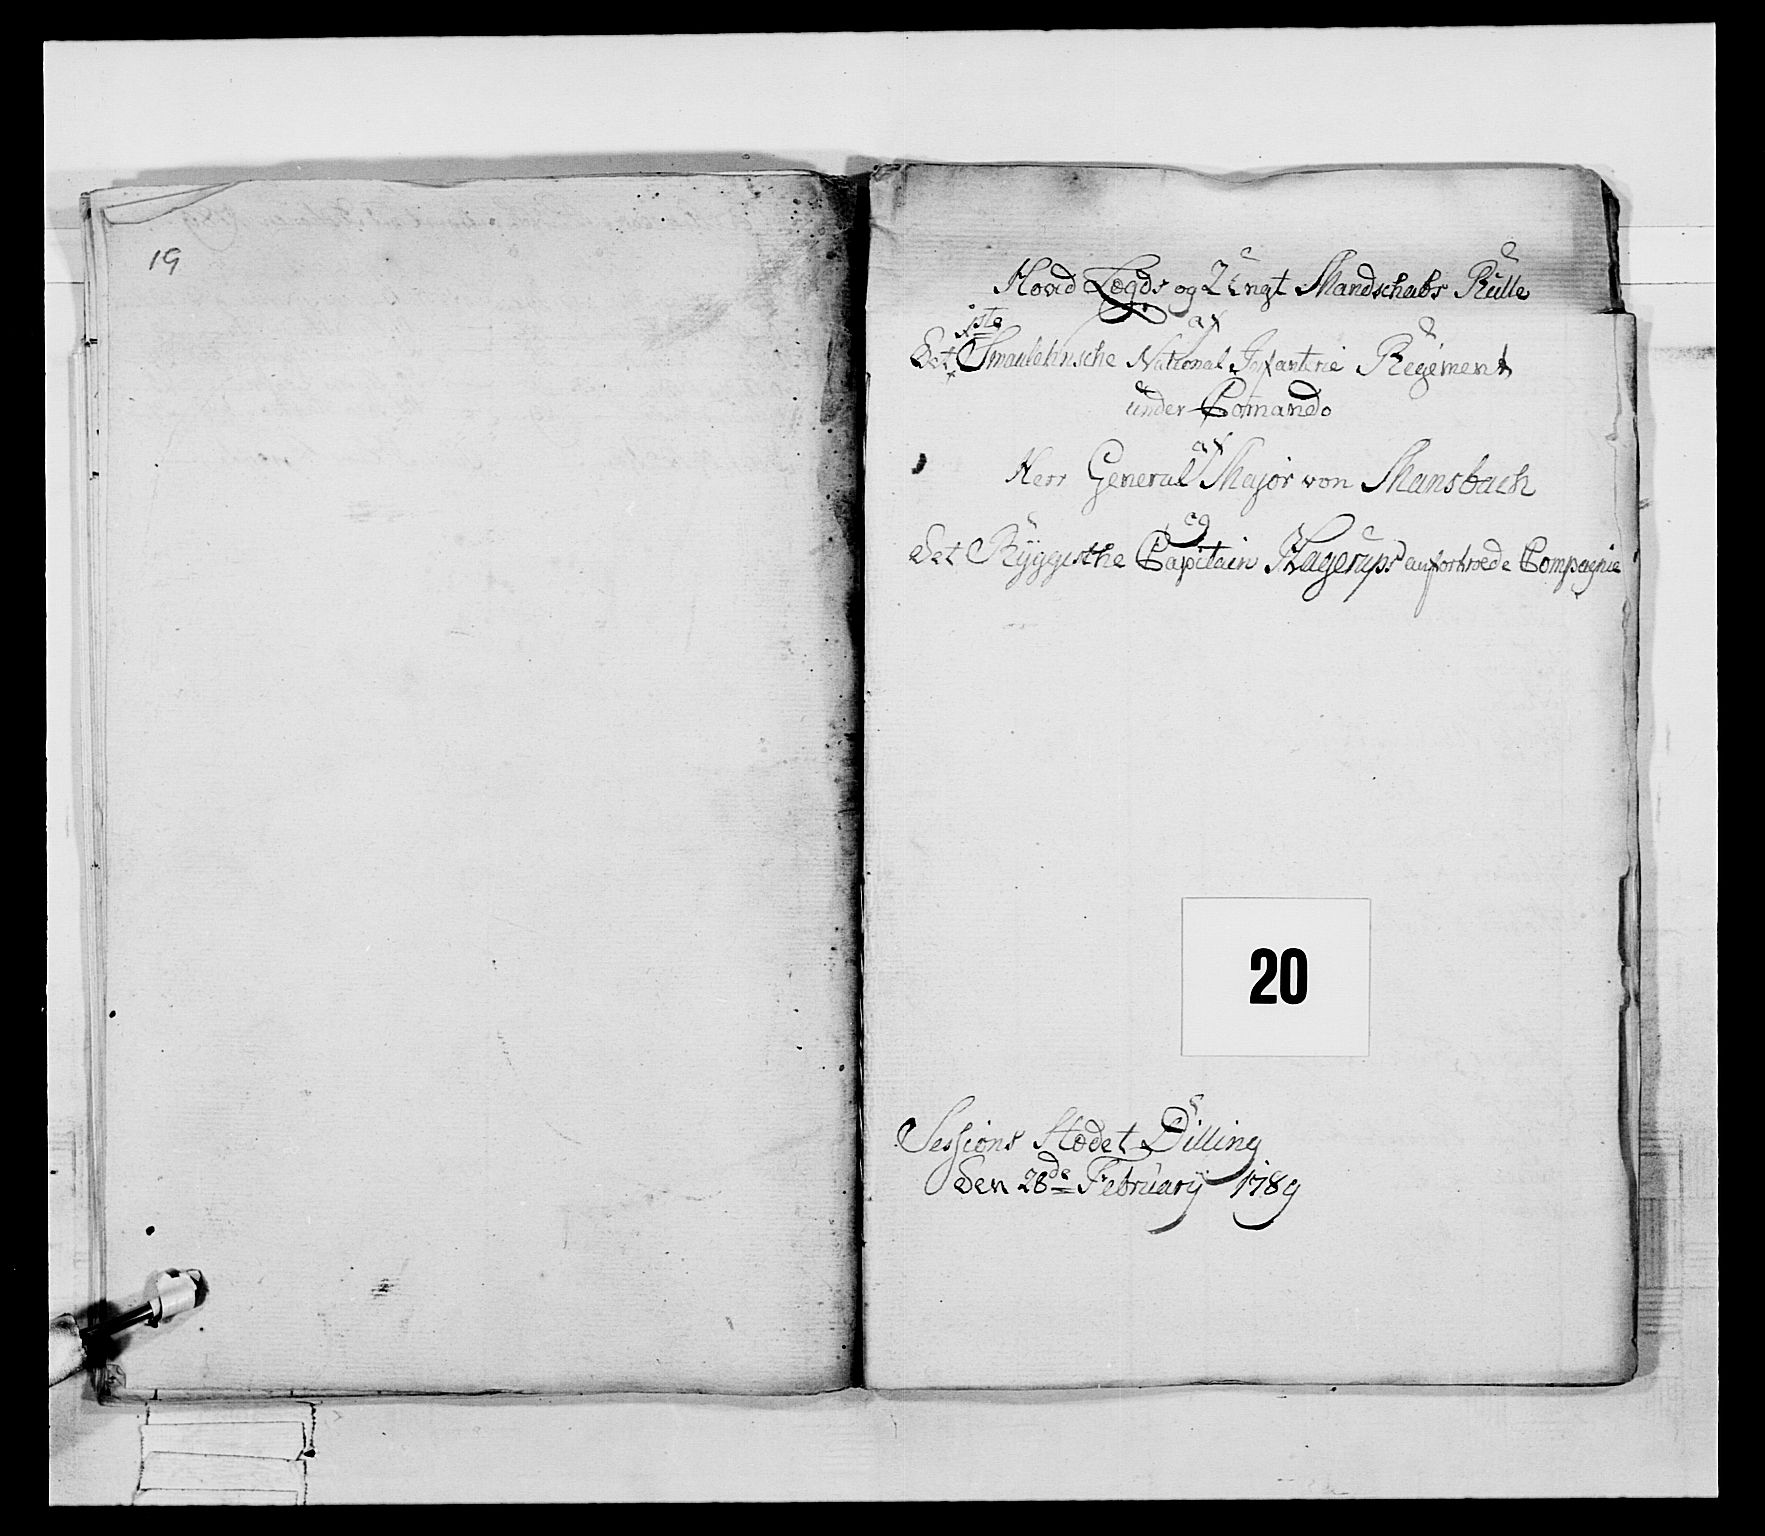 19
Hovid Lægds og Üngt Mandschabs Rülle
af
Det 1ste Smaulehnsche National Infanterie Regiment
ünder Comando
af
Herr General Major von Mansbach
og
Det Ryggesche Capitain Hagerüps anfortroede Compagnie
20
Sessions Stædet Dilling
Den 28de Februarÿ 1789